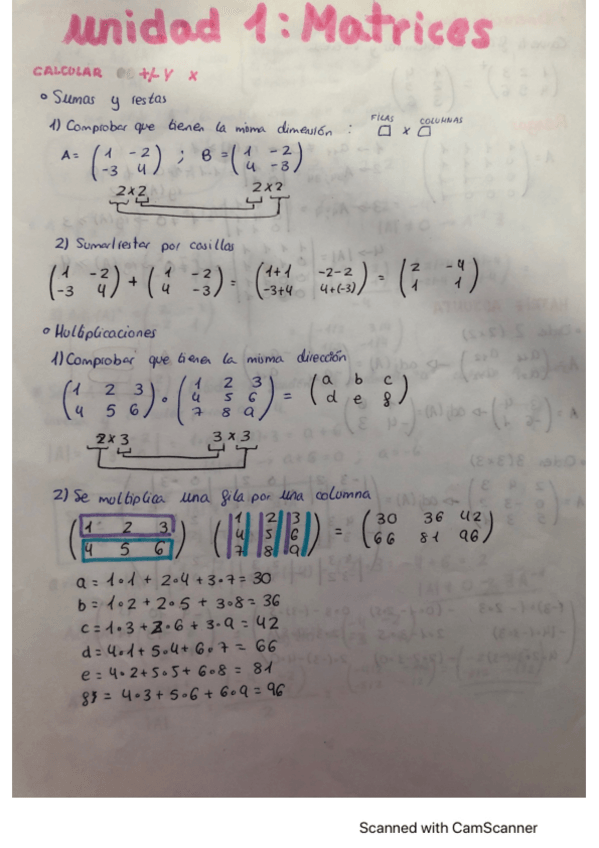 unidad 1: Matrices
CALCULAR +/- Y x
• Sumas y restas
1) Comprobar que tienen la misma dimensión : FILAS □ x COLUMNAS □
A = (1 -2 ; B = (1 -2
-3 4) 4 -3)
2x2 2x2
2) Sumar/restar por casillas
(1 -2 + (1 -2 = (1+1 -2-2 = (2 -4
-3 4) 4 -3) -3+4 4+(-3)) 1 1)
• Multiplicaciones
1) Comprobar que tienen la misma dirección
(1 2 3 · (1 2 3 = (a b c
4 5 6) 4 5 6 d e f)
7 8 9)
2x3 3x3
2) Se multiplica una fila por una columna
(1 2 3 (1 2 3 = (30 36 42
4 5 6) 4 5 6 66 81 96)
7 8 9)
a = 1·1 + 2·4 + 3·7 = 30
b = 1·2 + 2·5 + 3·8 = 36
c = 1·3 + 2·6 + 3·9 = 42
d = 4·1 + 5·4 + 6·7 = 66
e = 4·2 + 5·5 + 6·8 = 81
f = 4·3 + 5·6 + 6·9 = 96
Scanned with CamScanner